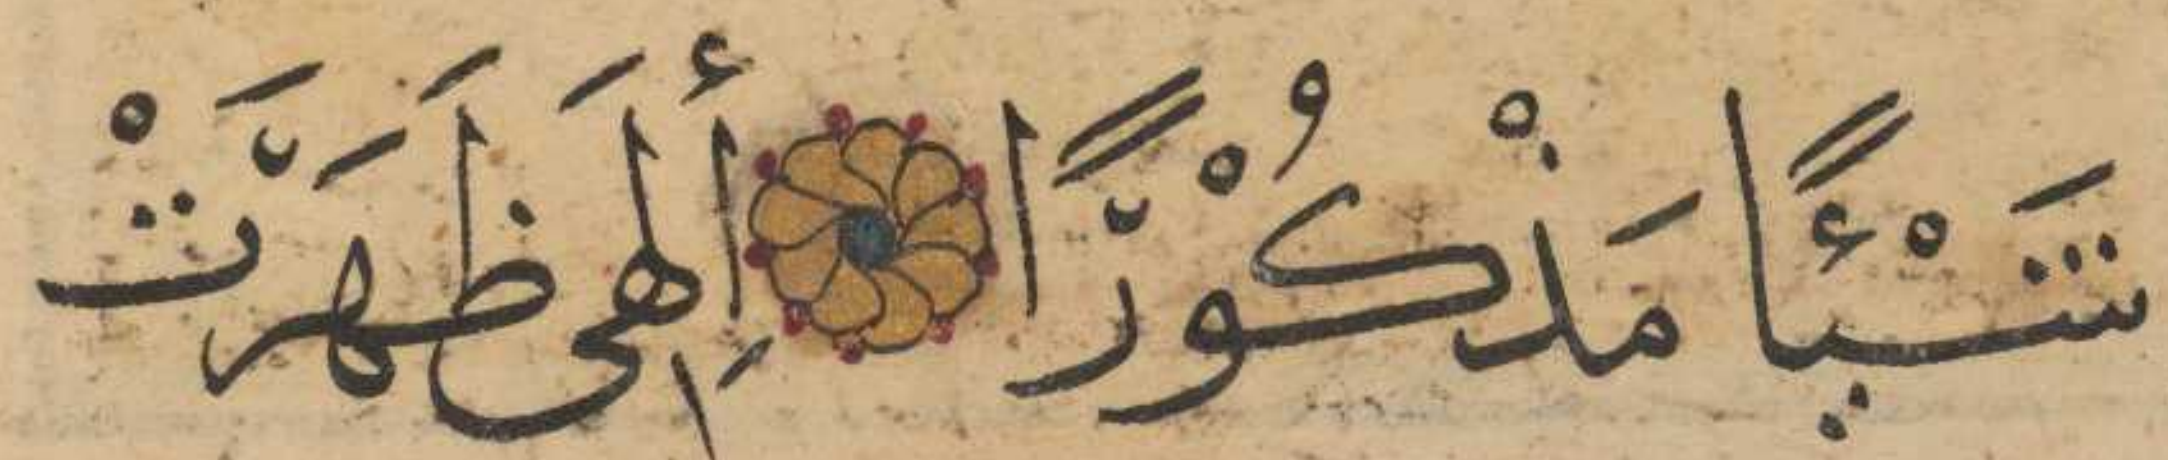 شَيْئًا مَذْكُوْرًا أَلِهَى ظَهَرَتْ